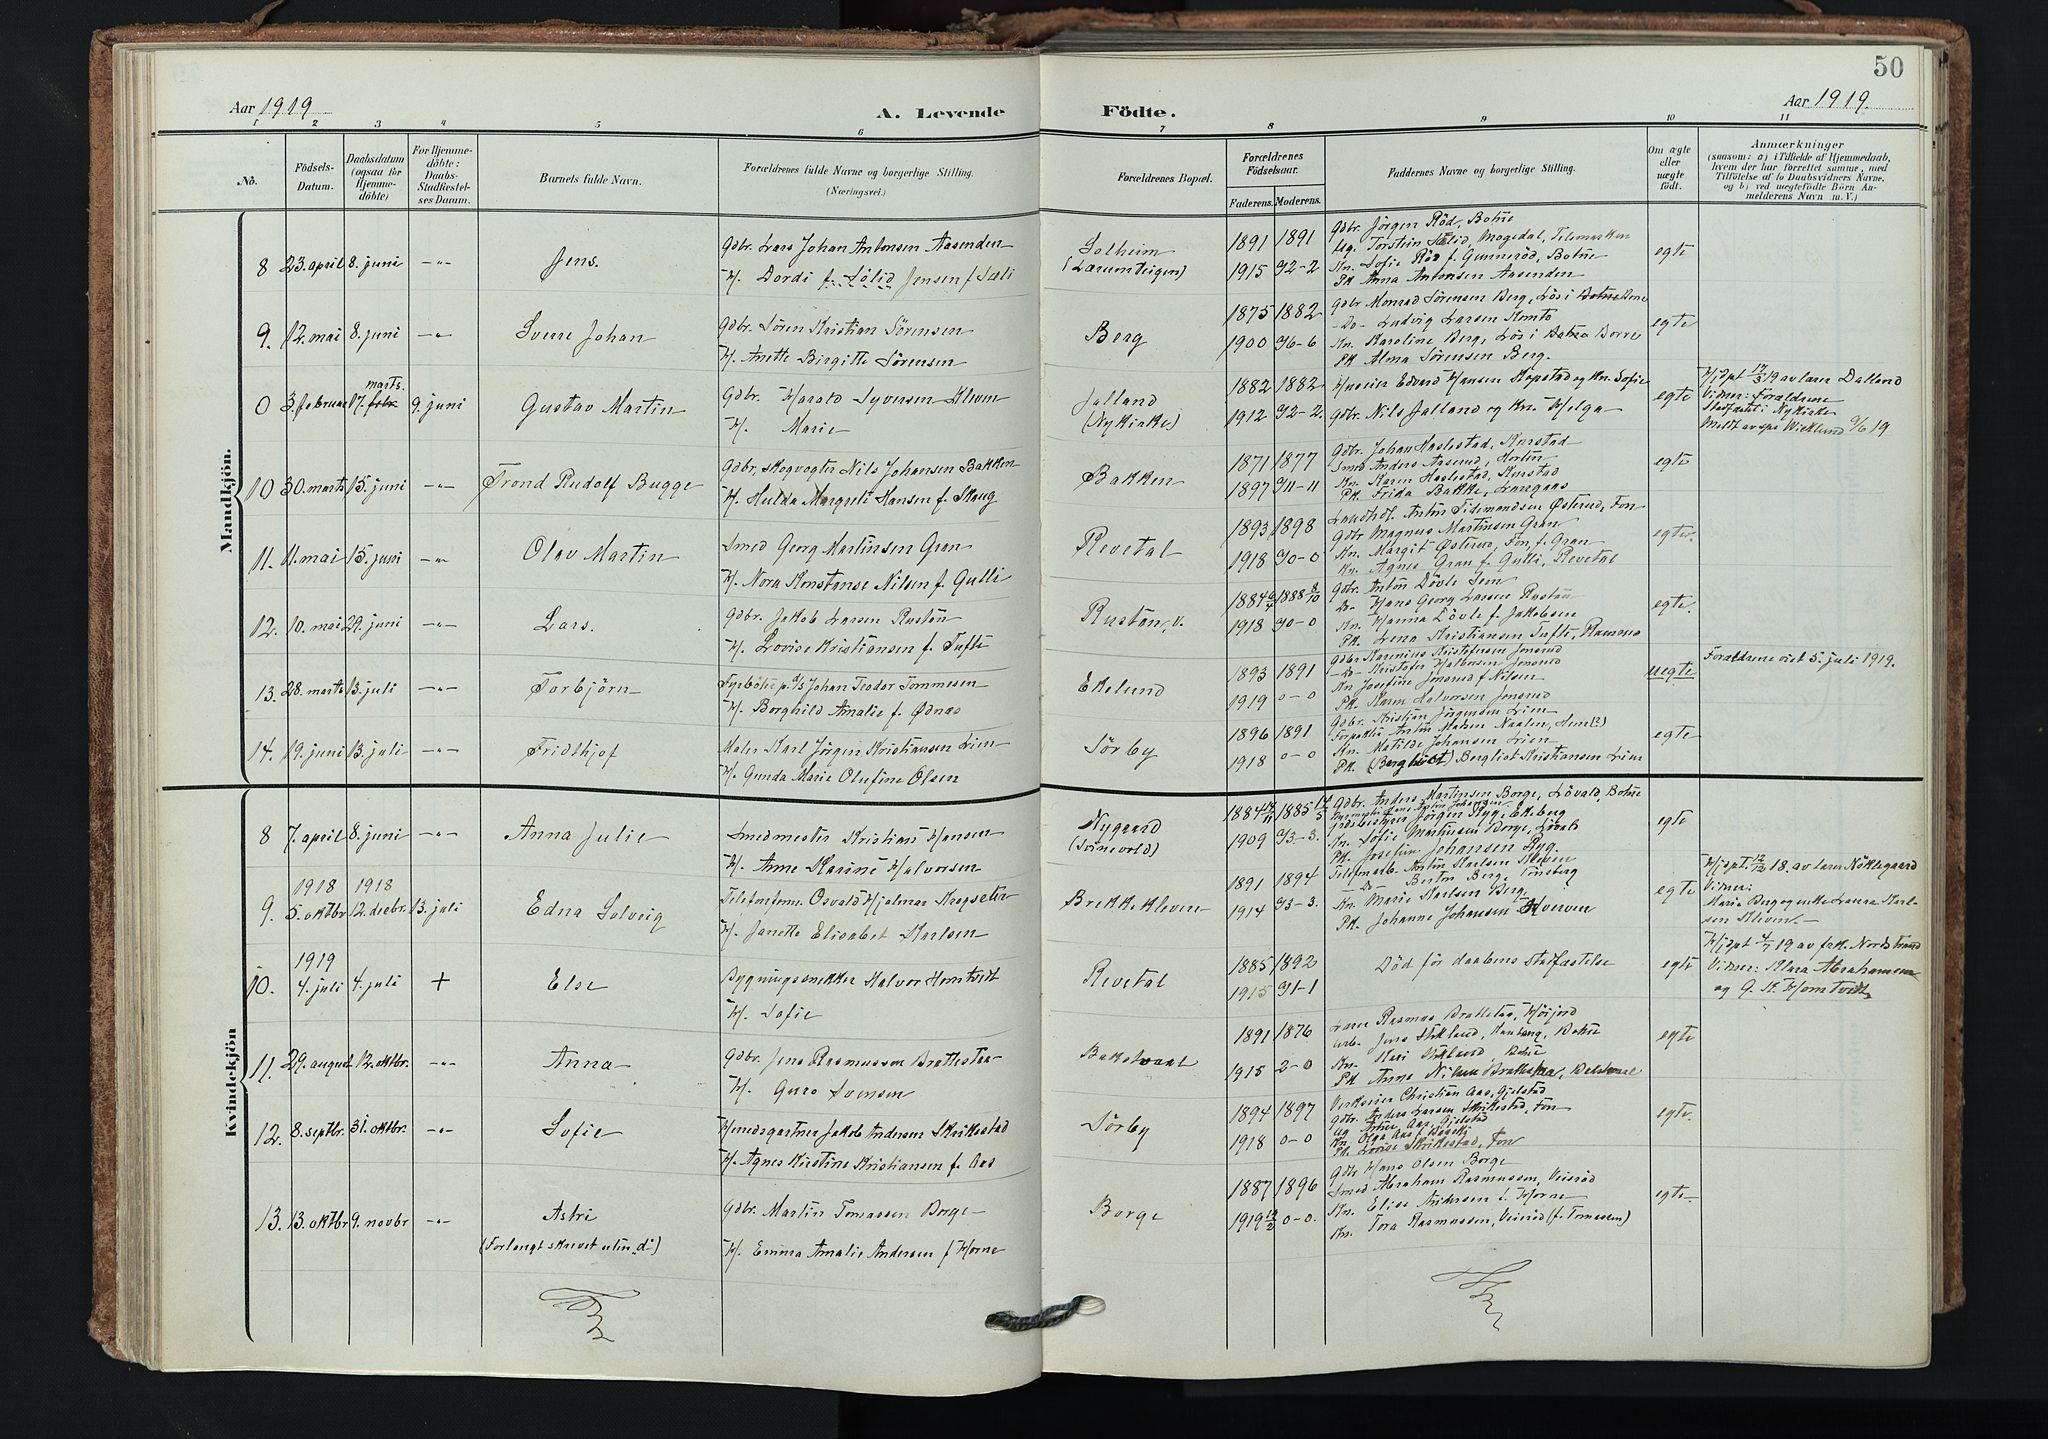 50
Aar 1919
A. Levende Födte.
Aar 1919.
1 2 3 4 5 6 7 8 9 10 11
No.
Födsels-Datum.
Daabsdatum (ogsaa for Hjemmedöbte)
For Hjemmedöbte: Daabs-Stadfæstelses Datum.
Barnets fulde Navn.
Forældrenes fulde Navne og borgerlige Stilling.
(Næringsvei.)
Forældrenes Bopæl.
Forældrenes Födselsaar.
Faderens. Moderens.
Faddernes Navne og borgerlige Stilling.
Om ægte eller uægte födt.
Anmærkninger
(saasom: a) i Tilfælde af Hjemmedaab, hvem der har forrettet samme, med Tilföielse af to Daabsvidners Navne, og b) ved uegtefödte Börn Anmelderens Navn m. V.)
Mandkjön.
8 23. april 8. juni -"- Jens.
Gdbr. Lars Johan Antonsen Aasenden
H. Dordi f. Sölid Jensen f Sæli
Solheim
1891 1891
1915 92-2
Gdbr. Jörgen Röd, Botne
Ug. Torstein Sælid, Mogedal, Telemarken
Kn. Sofie Röd f. Gunneröd, Botne
Pk Anna Antonsen Aasenden
egte
9. 12. mai 8. juni -"- Sverre Johan
Gdbr. Sören Kristian Sörensen
H. Anette Birgitte Sörensen
Berg
1875 1882
1900 96-6
Gdbr Monrad Sörensen Berg, Lös i Botne Borre
-Do- Ludvig Larsen Komto
Kn. Karoline Berg, Lös i Botne Borre
Pk. Alma Sörensen Berg.
egte
0 3. februar 17. marts. febr 9. juni Gustav Martin
Gdbr. Harald Syversen Kleven
H. Marie
Jalland
(Nykirke)
1882 1882
1912 92-2.
Huseier Edvard Hansen Kopstad og Kn. Sofie
Gdbr. Nils Jalland og Kn. Helga
egte
Hjdpt 17/3 19 av lærer Dalland
Vidner: Forældrene
Stadfæstet i Nykirke
Meldt av spr Wicklund 9/6 19
10 30. marts 15. juni -"- Trond Rudolf Bugge
Gdbr. Skogvogter Nils Johansen Bakken
H. Hulda Margrete Hansen f. Skaug
Bakken
1871 1877
1897 911-11
Gdbr. Johan Haslestad, Kurstad
Smed Anders Aaserud, Horten
Kn. Karen Haslestad, Kurstad
Pk. Frida Bakke, Lanegaas
egte
11. 11. mai 15. juni -"- Olav Martin
Smed Georg Martinsen Gran
H. Nora Konstanse Nilsen f. Gulli
Revetal
1893 1898
1918 90-0
Landhdl. Anton Tidemandsen Østerud, Fon
Gdbr Magnus Martinsen Gran
Kn. Margit Østerud, Fon, f. Gran
Kn. Agnes Gran f. Gulli, Revetal
egte.
12. 10. mai 29. juni -"- Lars.
Gdbr. Jakob Larsen Rustan
H. Lovise Kristiansen f. Tufte
Rustan, v.
1884 1888 8/10
1918 90-0
Gdbr. Anton Dövle Sem
Do- Hans Georg Larsen Rustan
Kn. Hanna Dövle f. Jakobsen
Pk. Lena Kristiansen Tufte, Ramnes
egte.
13. 28. marts 13. juli -"- Torbjörn
Fyrböter p. d/s Johan Teodor Tommesen
H. Borghild Amalie f. Ødnas
Ekelund
1893 1891
1919 0-0
Gdbr Karenius Kristofersen Jonsrud
-Do- Kristofer Halvorsen Jonsrud
Kn Josefine Jonsrud f Nilsen
Pk. Karen Halvorsen Jonsrud
uegte
Forældrene viet 5. juli 1919.
14. 19. juni 13. juli -"- Fridthjof
Maler Karl Jörgen Kristiansen Lien
H. Gunda Marie Olufine Olsen
Sörby
1896 1891
1918 0-0
Gdbr. Kristian Jörgensen Lien
Forpakter Anton Madsen Naalen, Hem(?)
Kn. Matilde Johansen Lien
Pk. Bergliot Kristiansen Lien
egte
Kvindekjön
8 7. april 8. juni -"- Anna Julie
Smedmester Kristian Hansen
H. Anne Marine Halvorsen
Nygaard
(Tornevold)
1884 1885
1909 93-3.
Gdbr. Anders Martinsen Borge, Lövald, Botne
Jörgen Ryg, Ekeberg
Kn. Sofie Martinsen Borge, Lövald
Pk. Josefine Johansen Ryg.
egte
9. 1918 5. oktbr 1918 12. decbr. 13. juli -"- Edna Solveig
Telefonform. Osvald Hjalmar Kopseter
H. Janette Elisabet Karlsen
Brekke Kleven
1891 1894
1914 93-3.
Telefonarb. Anton Karlsen Kleven
-Do- Berten Berg, Tönsberg
Kn. Marie Karlsen Berg
Pk. Johanne Johansen Kverven
egte
Hjdpt. 12/12 18. av lærer Nöklegaard
Vidner:
Marie Berg og enke Laura Karlsen Kleven.-
10. 1919 4. juli 4. juli + Else
Bygningssnekker Halvor Homtvedt
H. Sofie
Revetal
1885 1892
1915 91-1
Död för daabens stadfæstelse
egte
Hjdpt 4/7 19 av frk. Nordstrand
Vidner: Klara Abrahamsen
og G. K. Homtvedt
11. 29. august 12. oktbr. -"- Anna
Gdbr. Jens Rasmussen Brattestaa
H. Guro Svensen
Bakstvaal
1891 1876
1915 2-0
Lærer Rasmus Brattestaa, Hörjord
Arb. Jens Siklund, Botne
Kn. Kari Siklund, Botne
Pk Anne Nilsen Brattestaa, Bakstvaal
egte
12. 8. septbr. 31. oktbr. -"- Sofie
Herredsgartner Jakob Andersen Skrikestad
H. Agnes Kirstine Kristiansen f. Aas
Sörby
1894 1897
1918 0-0
Verkseier Christian Aas, Gjelstad
Gdbr. Anders Larsen Skrikestad, Fon
Ug Artur Aas, Gjelstad
Kn. Olga Aas f
Pk. Lovise Skrikestad, Fon
egte.
13. 13. oktbr 9. novbr -"- Astri
(Forlangt skrevet uten "d")
Gdbr. Martin Tomassen Borge
H. Emma Amalie Andersen f Horne
Borge
1887 1896
1919 12/2 0-0.
Gdbr Hans Olsen Borge
Smed Abraham Rasmussen, Veieröd
Kn. Elise Andersen f. Horne
Kn. Tora Rasmussen, Veieröd (f. Tomessen)
egte